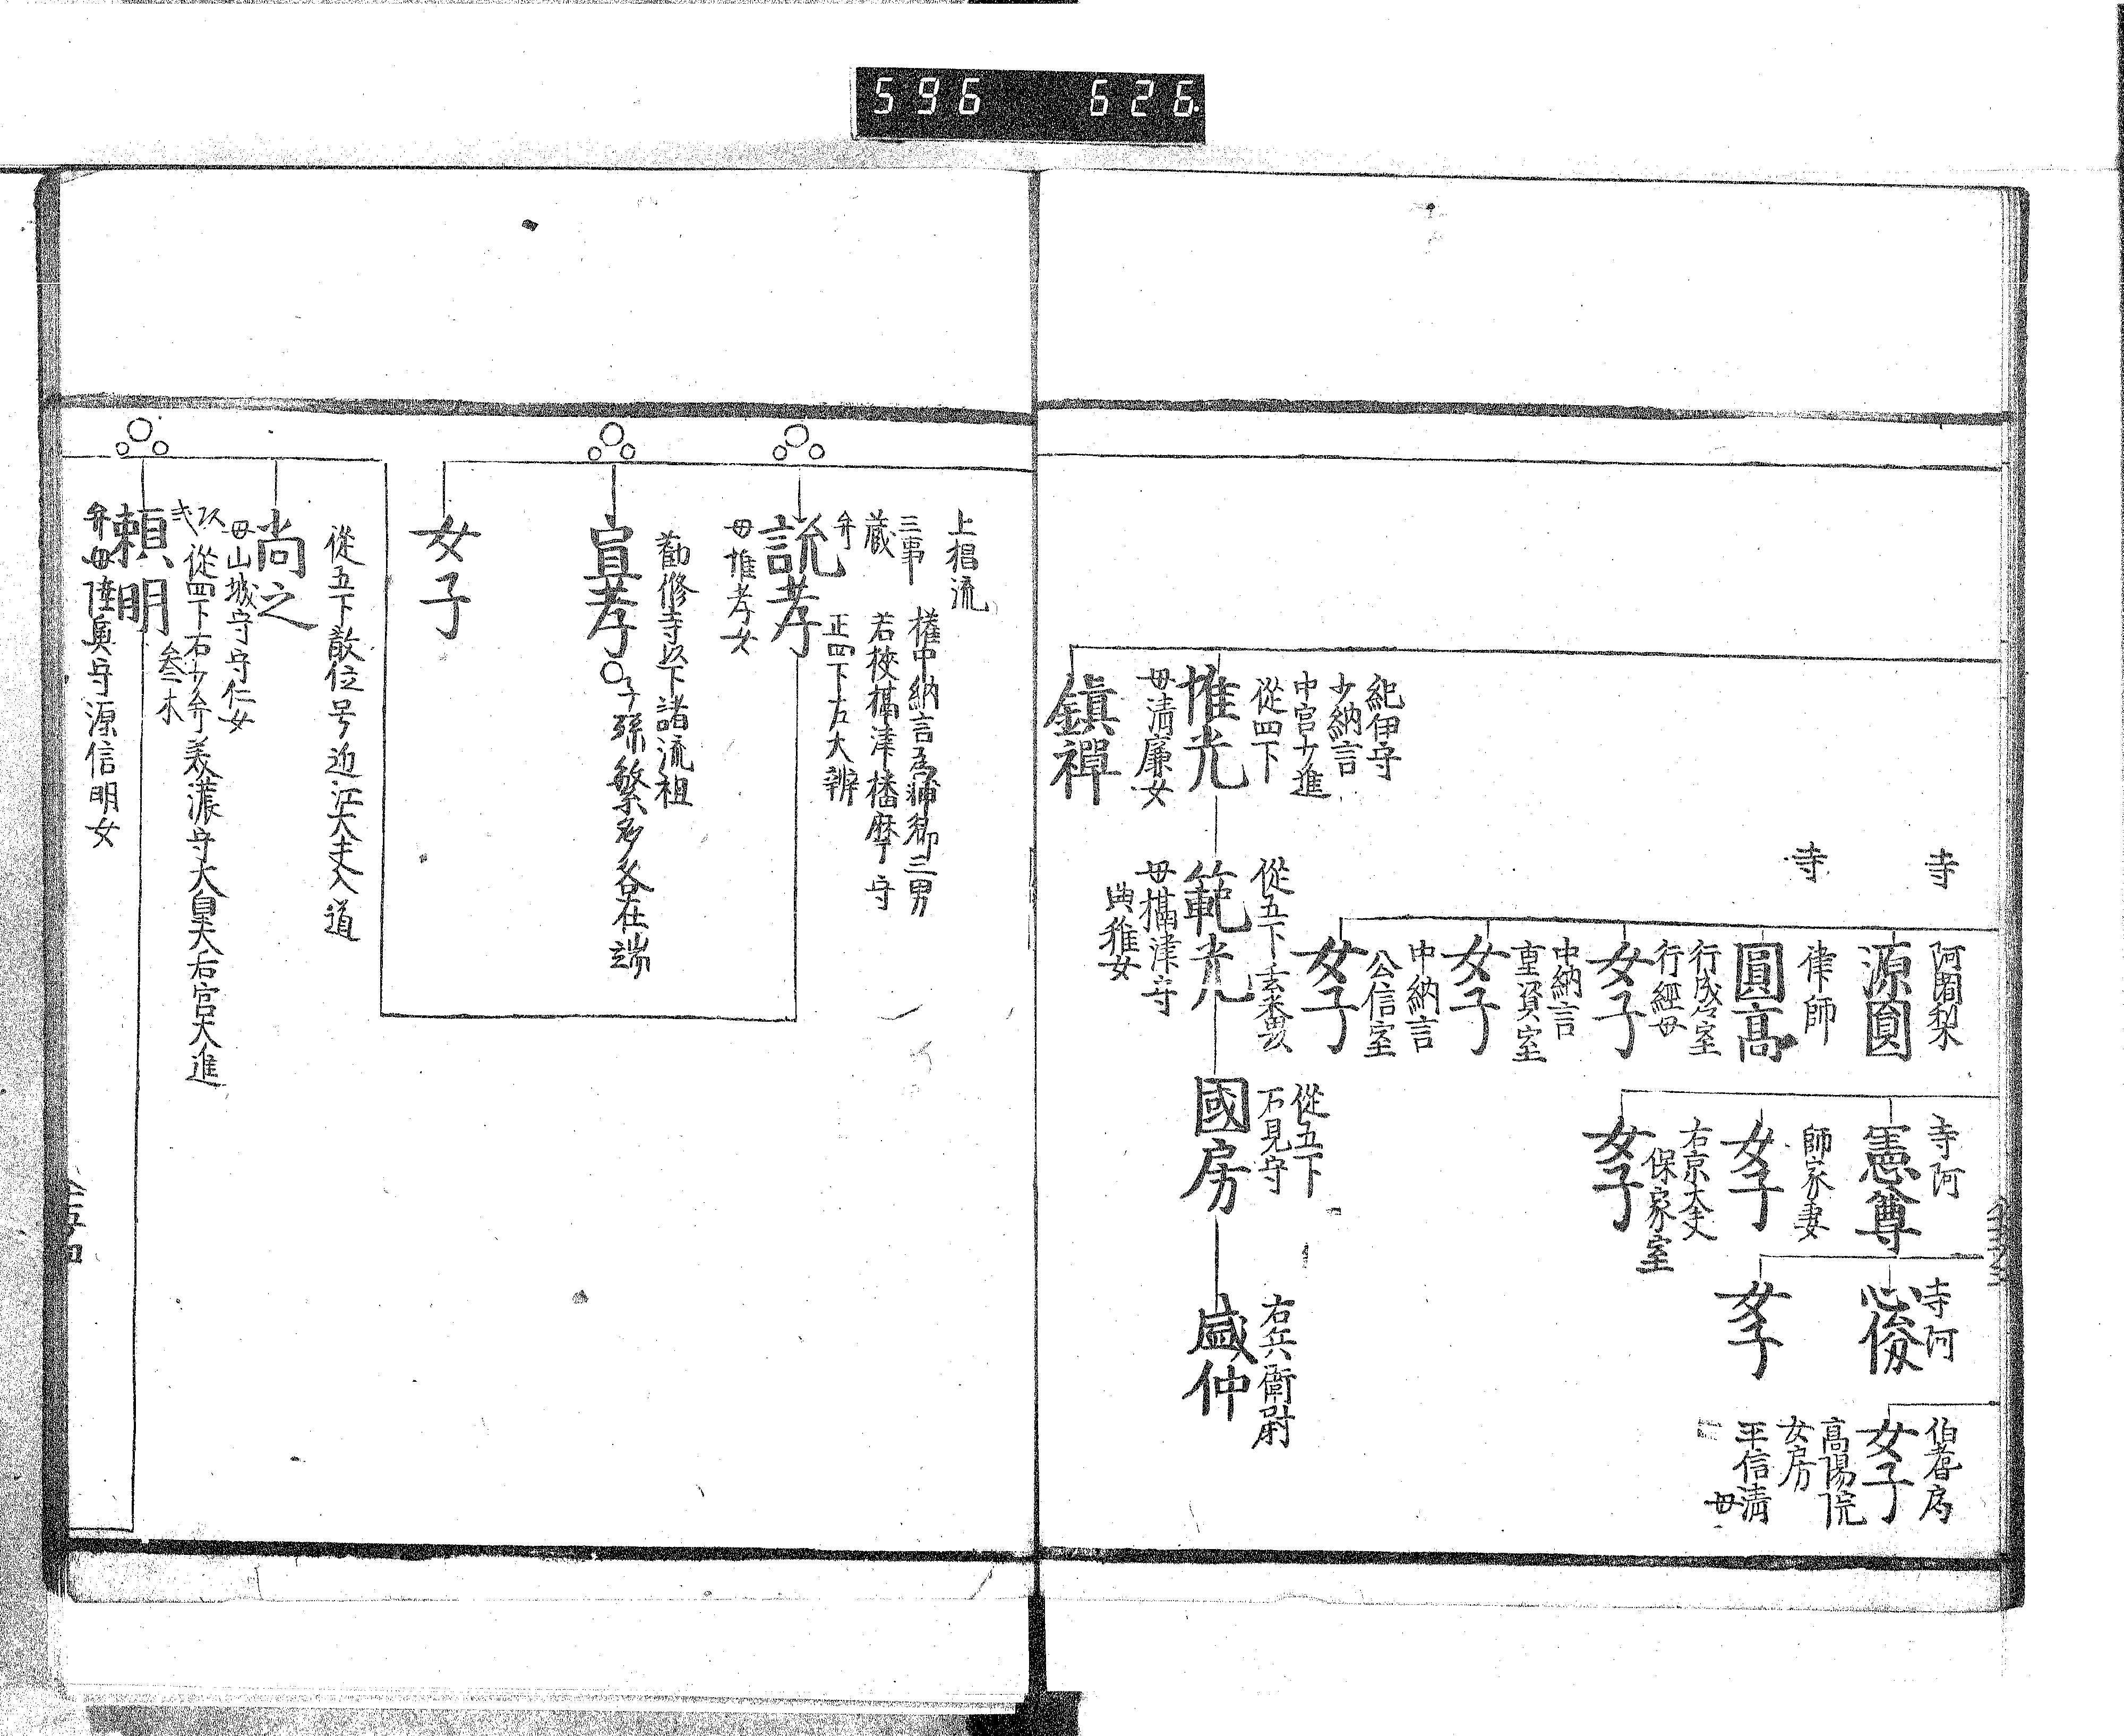 596 626
寺
阿闍梨
源圓
寺
律師
圓高
行成室
行經母
女子
中納言
重資室
女子
中納言
公信室
女子
寺阿
憲尊
師家妻
女子
右京大夫
保家室
女子
寺阿
心俊
女子
伯耆房
女子
高陽院
女房
平信清
母
紀伊守
少納言
中宮少進
從四下
惟光
母清廉女
鎮禪
從五下玄番頭
範光
母攝津守
典雅女
從五下
石見守
國房
右兵衛尉
盛仲
三事
權中納言為輔卿三男
藏
若狹攝津播磨守
弁
正四下左大辨
説孝
母惟孝女
勸修寺以下諸流祖
宣孝
子孫繁多各在端
女子
從五下散位号近江大夫入道
尚之
母山城守守仁女
從四下右少弁美濃守大皇太后宮大進
頼明
弁
母陸奥守源信明女